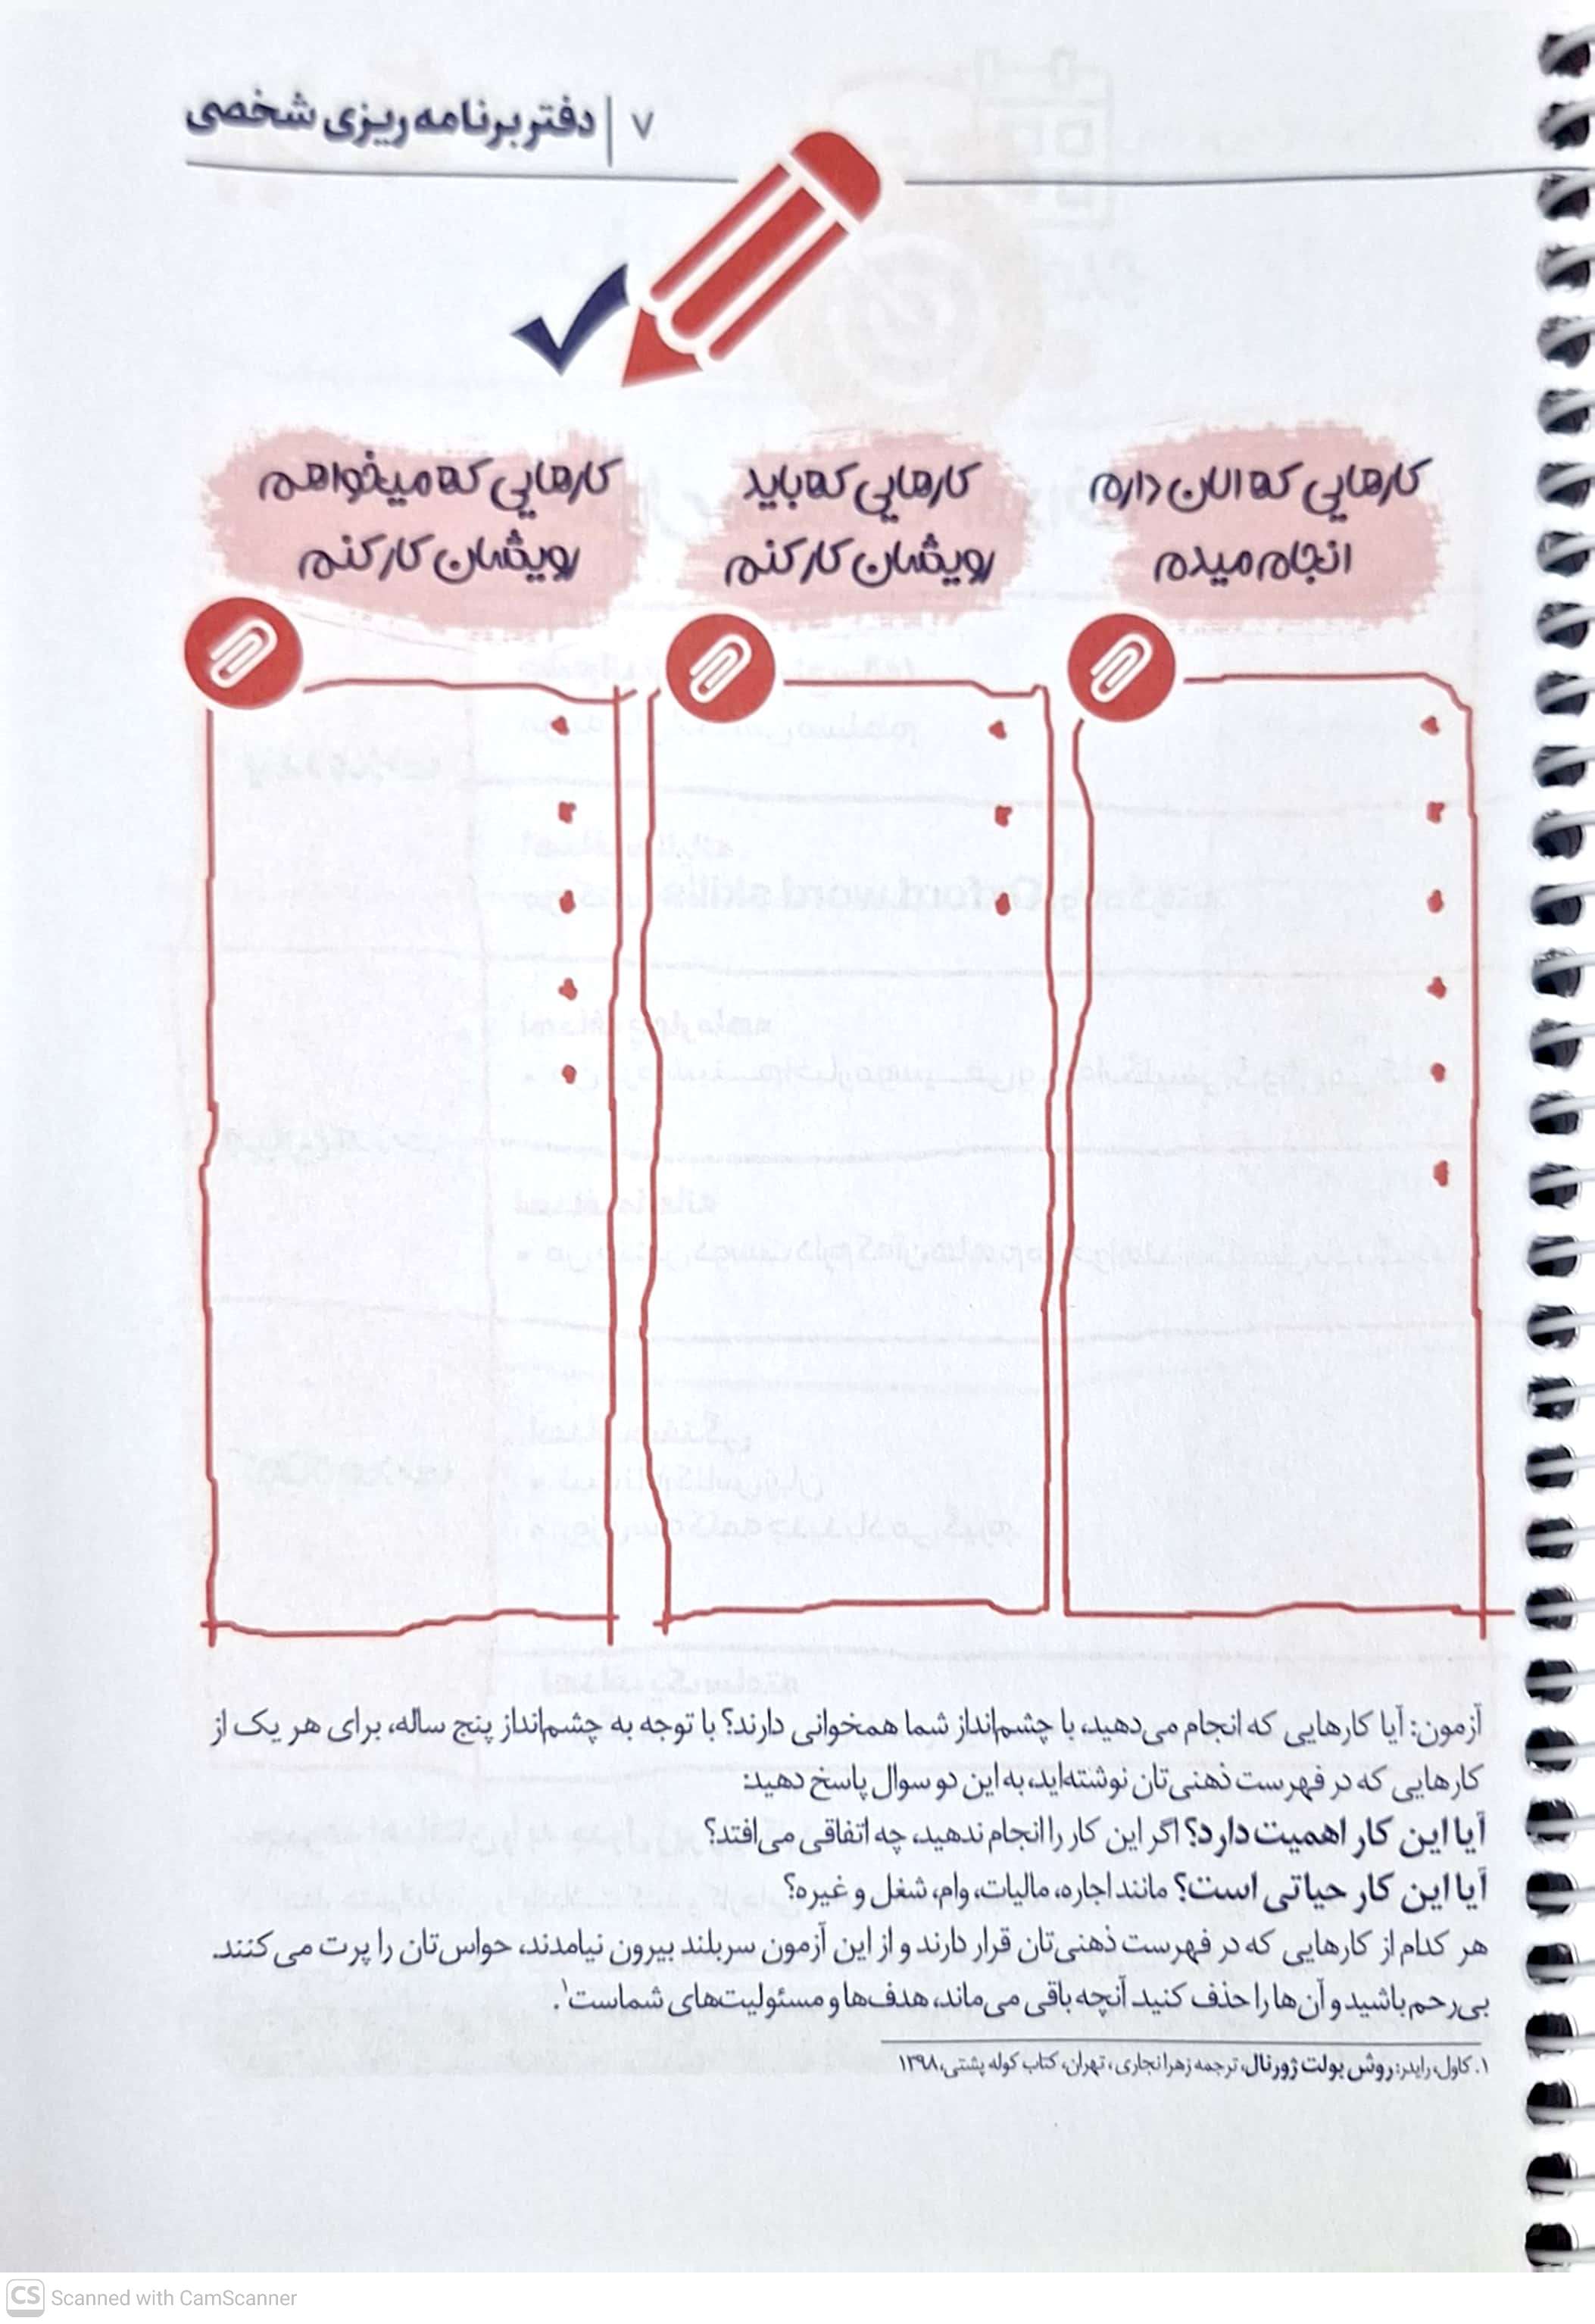 ۷ | دفتر برنامه ریزی شخصی
کارهایی که الان دارم
انجام میدم
کارهایی که باید
رویشان کار کنم
کارهایی که میخواهم
رویشان کار کنم
آزمون: آیا کارهایی که انجام می‌دهید، با چشم‌انداز شما همخوانی دارند؟ با توجه به چشم‌انداز پنج ساله، برای هر یک از
کارهایی که در فهرست ذهنی‌تان نوشته‌اید، به این دو سوال پاسخ دهید:
آیا این کار اهمیت دارد؟ اگر این کار را انجام ندهید، چه اتفاقی می‌افتد؟
آیا این کار حیاتی است؟ مانند اجاره، مالیات، وام، شغل و غیره؟
هر کدام از کارهایی که در فهرست ذهنی‌تان قرار دارند و از این آزمون سربلند بیرون نیامدند، حواس‌تان را پرت می کنند.
بی‌رحم باشید و آن‌ها را حذف کنید. آنچه باقی می‌ماند، هدف‌ها و مسئولیت‌های شماست۱.
۱. کاول، رایدر: روش بولت ژورنال، ترجمه زهرا نجاری، تهران، کتاب کوله پشتی، ۱۳۹۸
CS Scanned with CamScanner